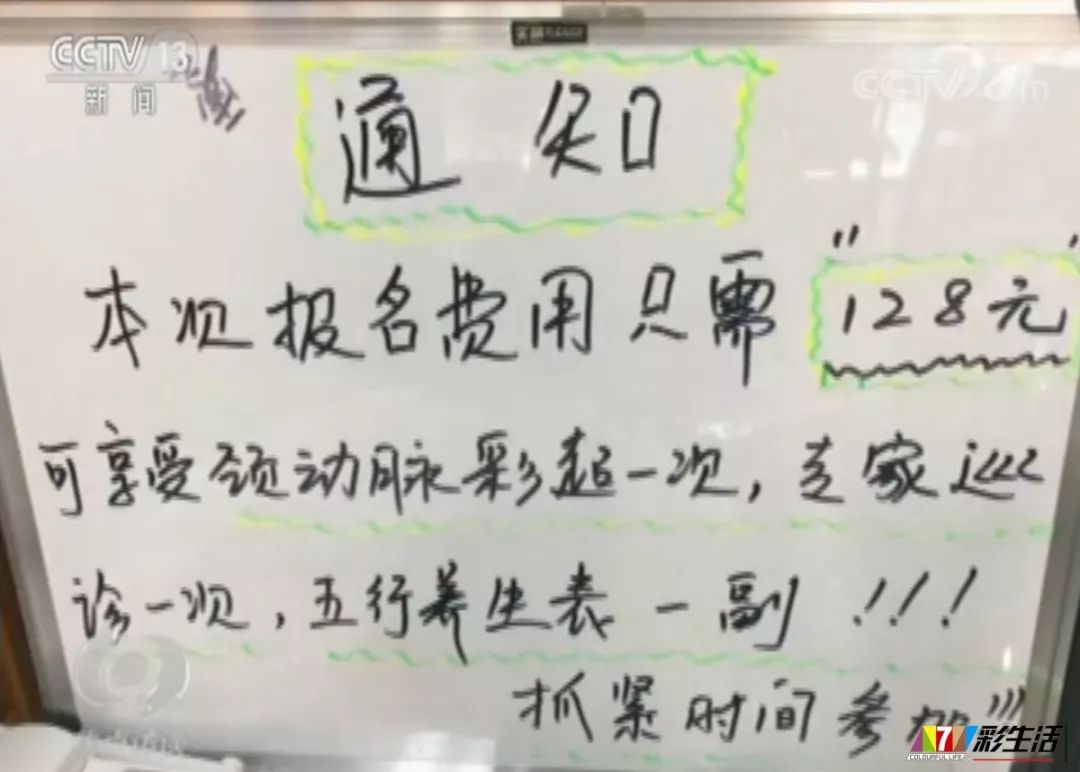 CCTV 13
新闻
CCTV.com
通知
本次报名费用只需"128元"
可享受颈动脉彩超一次,专家巡
诊一次,五行养生表一副!!!
抓紧时间参加!!!
7彩生活
COLOURFUL LIFE